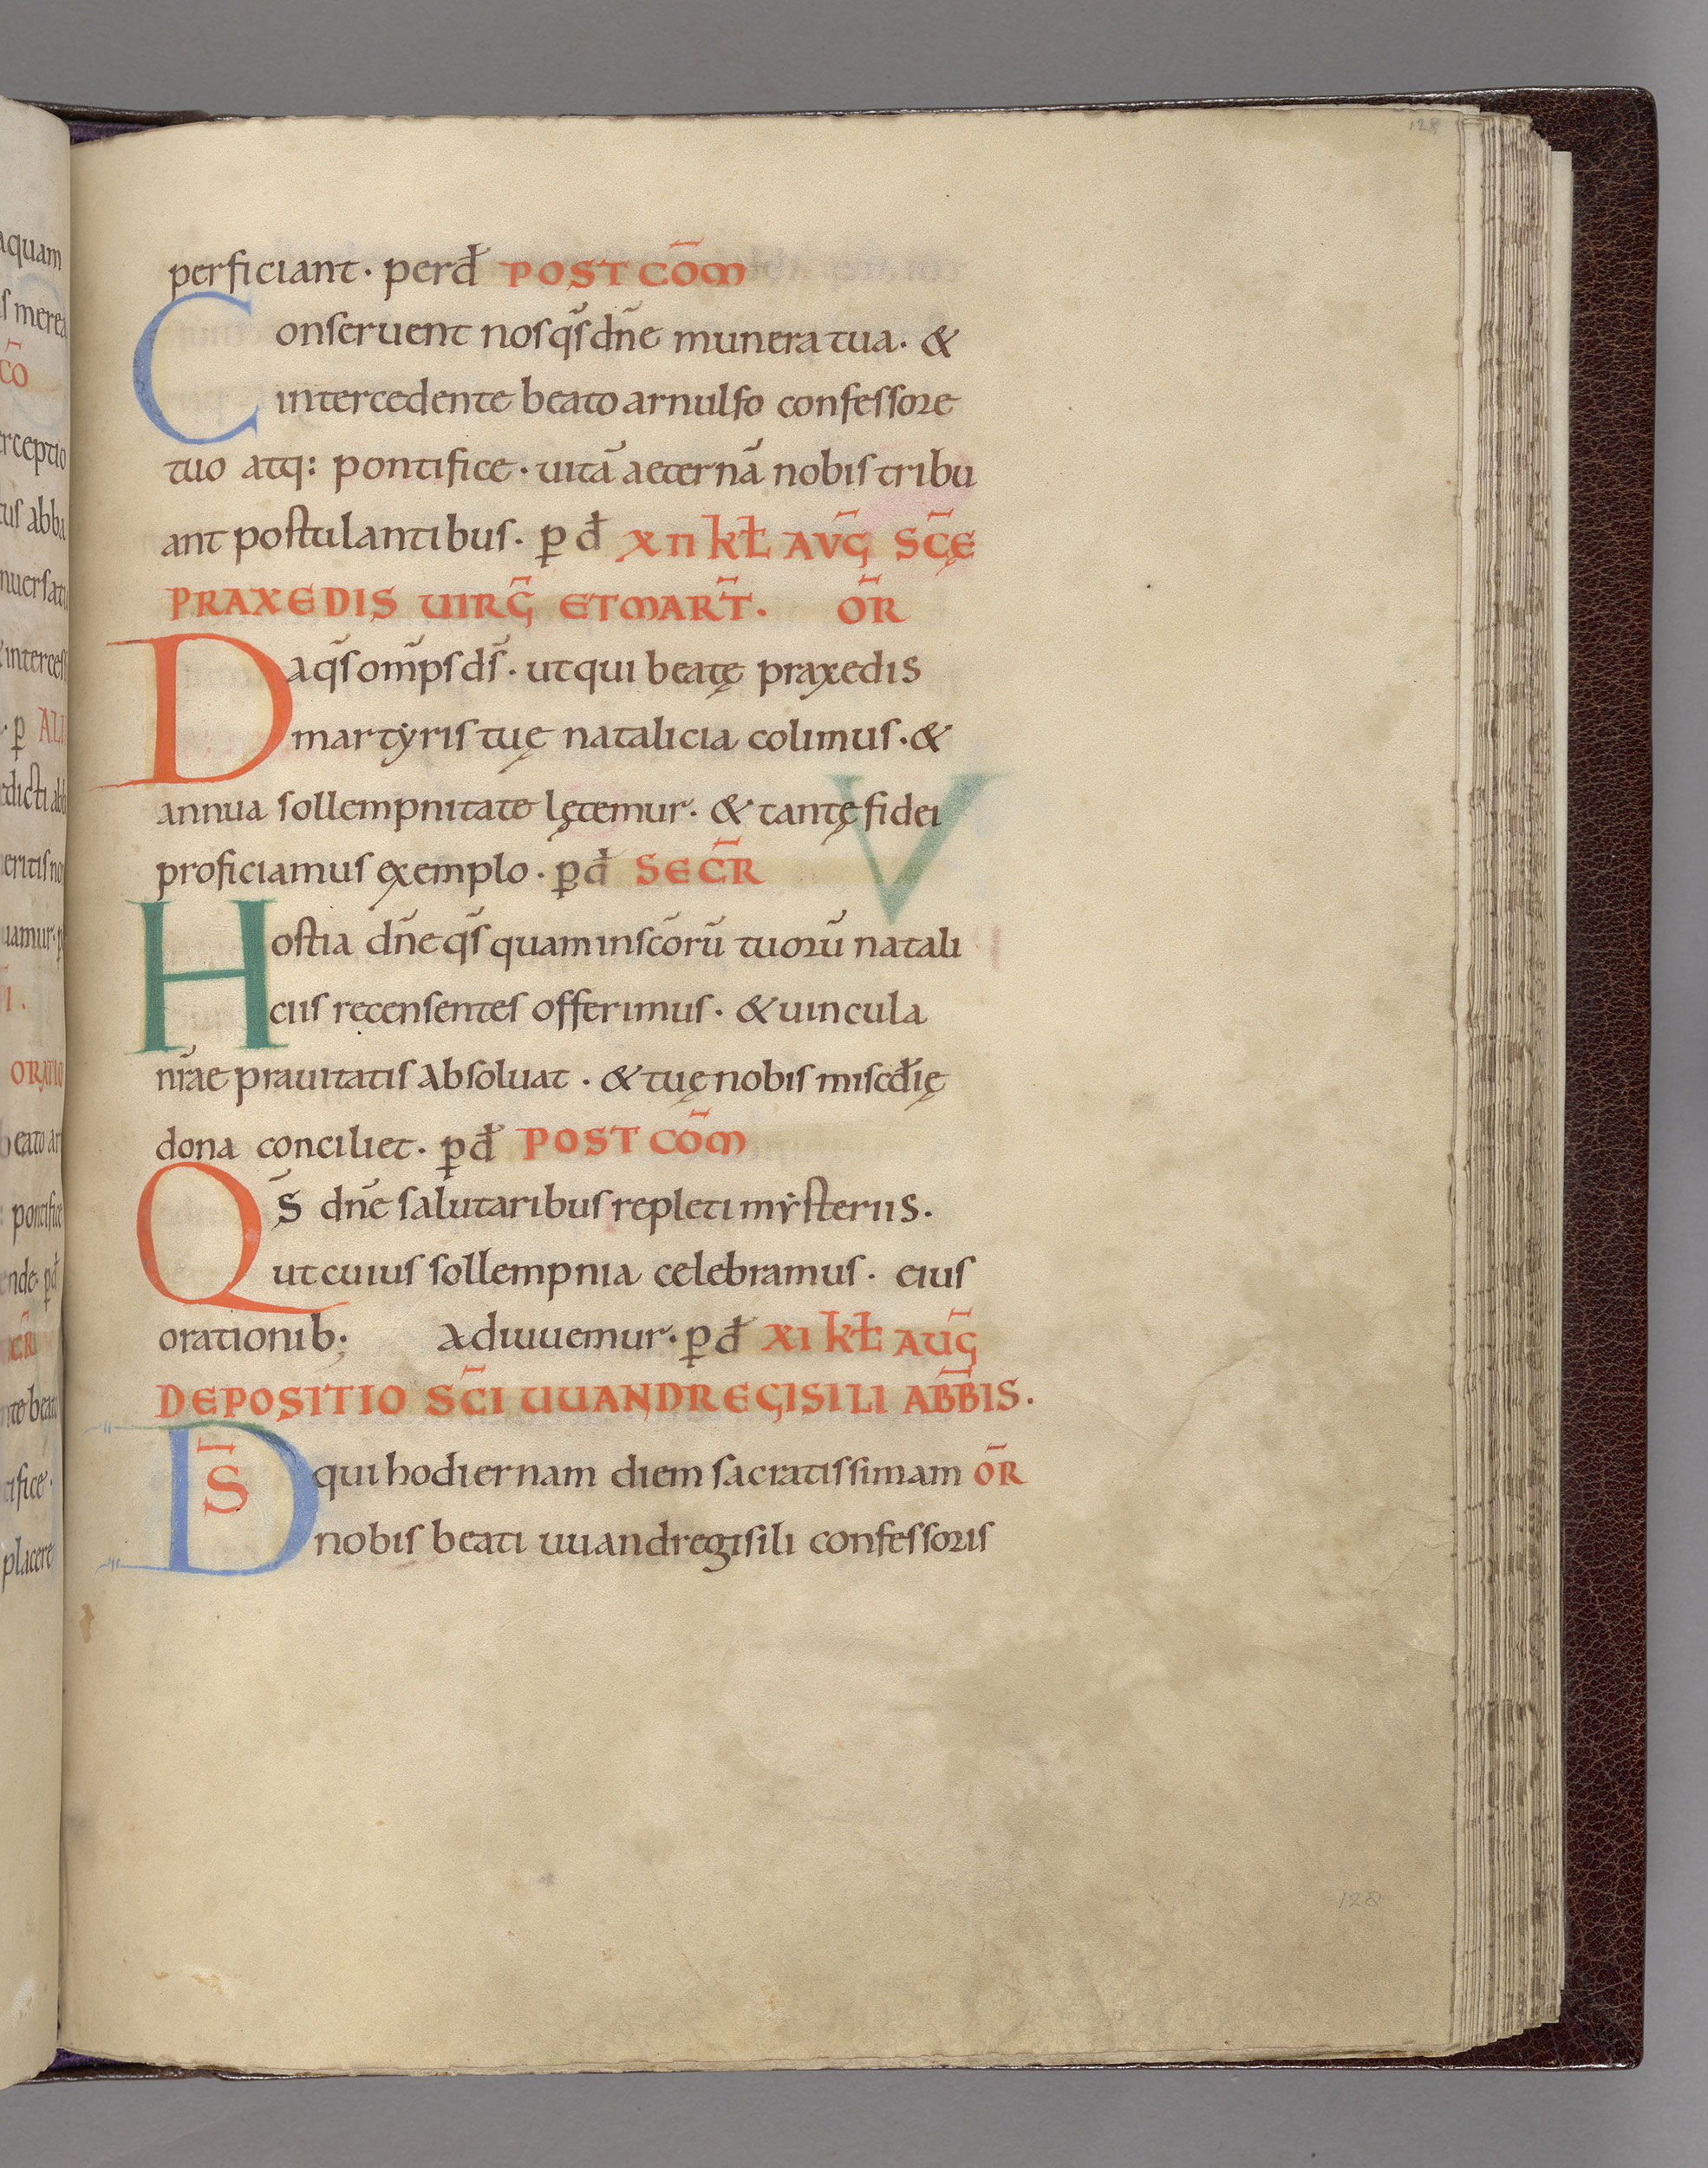 128
perficiant · perd̄ POST COM̄
Conseruent nos qs̄ dn̄e munera tua · &
intercedente beato arnulfo confessore
tuo atq: pontifice · uitā aeternā nobis tribu
ant postulantibus · p̱ d̄ XII kƚ AVḠ SC̄Ę
PRAXEDIS UIRḠ ET MART̄. OR̄
Da qs̄ om̄ps ds̄ · ut qui beatę praxedis
martẏris tuę natalicia colimus · &
annua sollempnitate lętemur · & tantę fidei
proficiamus exemplo · p̱d̄ SECR̄
Hostia dn̄e qs̄ quam in sc̄orū tuorū natali
ciis recensentes offerimus · & uincula
nr̄ae prauitatis absoluat · & tuę nobis miscd̄ię
dona conciliet · p̱d̄ POST COM̄
Qs̄ dn̄e salutaribus repleti mẏsteriis.
ut cuius sollempnia celebramus · eius
orationib; adiuuemur · p̱d̄ XI kƚ AUḠ
DEPOSITIO SC̄I UUANDREGISILI ABB̄IS.
DS̄ qui hodiernam diem sacratissimam OR̄
nobis beati uuandregisili confessoris
128